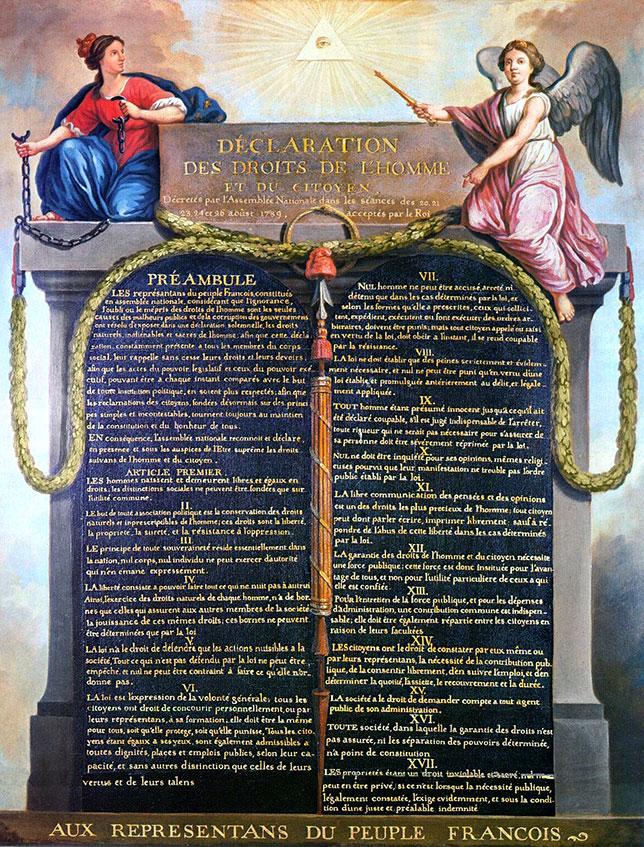 DÉCLARATION
DES DROITS DE L'HOMME
ET DU CITOYEN,
Décretés par l'Assemblée Nationale dans les séances des 20.21
23.24 et 26 aoûst 1789, acceptés par le Roi
PRÉAMBULE
LES représantans du peuple François, constitués
en assemblée nationale, considérant que l'ignorance,
l'oubli ou le mépris des droits de l'homme sont les seules
causes des malheurs publics et de la corruption des gouvernemens
ont résolu d'exposer dans une déclaration solemnelle, les droits
naturels, inaliénables et sacrés de l'homme; afin que cette décla
ration, constamment présente a tous les membres du corps
social, leur rappelle sans cesse leurs droits et leurs devoirs;
afin que les actes du pouvoir législatif et ceux du pouvoir exé
cutif, pouvant être à chaque instant comparés avec le but
de toute institution politique, en soient plus respectés; afin que
les reclamations des citoyens, fondées désormais sur des princi
pes simples et incontestables, tournent toujours au maintien
de la constitution et du bonheur de tous.
EN conséquence, l'assemblée nationale reconnoit et déclare,
en presence et sous les auspices de l'Etre suprême les droits
suivans de l'homme et du citoyen.
ARTICLE PREMIER.
LES hommes naissent et demeurent libres et égaux en
droits; les distinctions sociales ne peuvent être fondées que sur
l'utilité commune.
II.
LE but de toute association politique est la conservation des droits
naturels et inprescriptibles de l'homme; ces droits sont la liberté,
la propriété, la sureté, et la résistance à l'oppression.
III.
LE principe de toute souveraineté réside essentiellement dans
la nation, nul corps, nul individu ne peut exercer d'autorité
qui n'en émane expressement.
IV.
LA liberté consiste a pouvoir faire tout ce qui ne nuit pas à autrui
Ainsi, l'exercice des droits naturels de chaque homme, n'a de bor
nes que celles qui assurent aux autres membres de la société
la jouissance de ces mêmes droits; ces bornes ne peuvent
être déterminées que par la loi
V.
LA loi n'a le droit de défendre que les actions nuisibles a la
société, Tout ce qui n'est pas défendu par la loi ne peut être
empêché, et nul ne peut être contraint à faire ce qu'elle n'or
donne pas.
VI.
LA loi est l'expression de la volonté générale; tous les
citoyens ont droit de concourir personnellement, ou par
leurs représentans, à sa formation; elle doit être la même
pour tous, soit qu'elle protege, soit qu'elle punisse, Tous les cito
yens étant égaux a ses yeux, sont également admissibles a
toutes dignités, places et emplois publics, selon leur ca
pacité, et sans autres distinction que celles de leurs
vertus et de leurs talens
VII.
NUL homme ne peut être accusé, arreté, ni
détenu que dans les cas déterminés par la loi, et
selon les formes qu'elle a prescrites, ceux qui sollici
tent, expédient, exécutent ou font exécuter des ordres ar
bitraires, doivent être punis; mais tout citoyen appelé ou saisi
en vertu de la loi, doit obéir a l'instant, il se rend coupable
par la résistance.
VIII.
LA loi ne doit établir que des peines strictement et évidem-
ment nécessaire, et nul ne peut être puni qu'en vertu d'une
loi établie, et promulguée antérierement au délit, et légale-
ment appliquée.
IX.
TOUT homme étant présumé innocent jusqu'a ce qu'il ait
été déclaré coupable, s'il est jugé indispensable de l'arrêter,
toute rigueur qui ne serait pas nécessaire pour s'assurer de
sa personne doit être sévèrement réprimée par la loi.
X.
NUL ne doit être inquiété pour ses opinions, mêmes religi
euses pourvu que leur manifestation ne trouble pas l'ordre
public établi par la loi.
XI.
LA libre communication des pensées et des opinions
est un des droits les plus precieux de l'homme; tout citoyen
peut dont parler écrire, imprimer librement; sauf à ré
pondre de l'abus de cette liberté dans les cas déterminés
par la loi.
XII.
LA garantie des droits de l'homme et du citoyen nécessite
une force publique; cette force est donc instituée pour l'avan
tage de tous, et non pour l'utilité particuliere de ceux a qui
elle est confiée.
XIII.
Pour l'entretien de la force publique, et pour les dépenses
d'administration, une contribution commune est indispen-
sable; elle doit être également répartie entre les citoyens en
raison de leurs facultées
XIV.
LES citoyens ont le droit de constater par eux même ou
par leurs représentans, la nécessité de la contribution pub-
lique, de la consentir librement, d'en suivre l'emploi, et d'en
déterminer la quotité, l'assiette, le recouvrement et la durée.
XV.
LA société a le droit de demander compte a tout agent
public de son administration.
XVI.
TOUTE société, dans laquelle la garantie des droits n'est
pas assurée, ni les séparation des pouvoirs déterminée,
n'a point de constitution
XVII.
LES proprietés étant un droit inviolable et sacré, nul ne
peut en être privé, si ce n'est lorsque la nécessité publique,
légalement constatée, l'exige evidemment, et sous la condi
tion d'une juste et préalable indemnité
AUX REPRESENTANS DU PEUPLE FRANCOIS